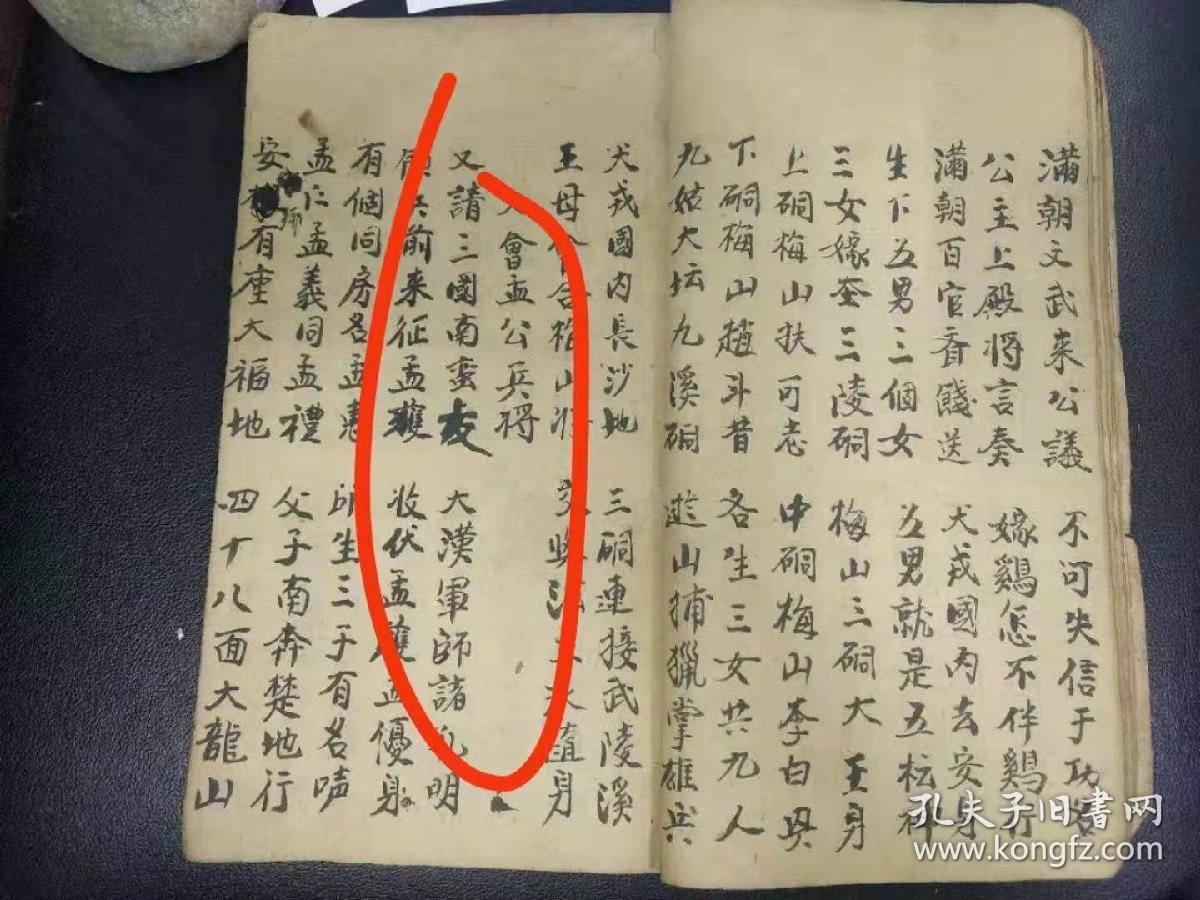 滿朝文武来公議 不可失信于功
公主上殿将言奏 嫁鷄怎不伴鷄行
滿朝百官香餞送 犬戎國内去安身
生下五男三個女 五男就是五坛神
三女嫁奎三陵硐 梅山三硐大王身
上硐梅山扶可志 中硐梅山李白與
下硐梅山趙斗昔 各生三女共九人
九姑大坛九溪硐 遊山捕獵掌雄兵
犬戎國内長沙地 三硐連接武陵溪
王母 合梅山 法 水隨身
會孟公兵将
又請三國南蛮 大漢軍師諸 明
兵前来征孟獲 收伏孟獲孟優身
有個同房名孟 所生三子有名声
孟仁孟義同孟禮 父子南奔楚地行
安 有座大福地 四十八面大龍山
孔夫子旧书网
www.kongfz.com